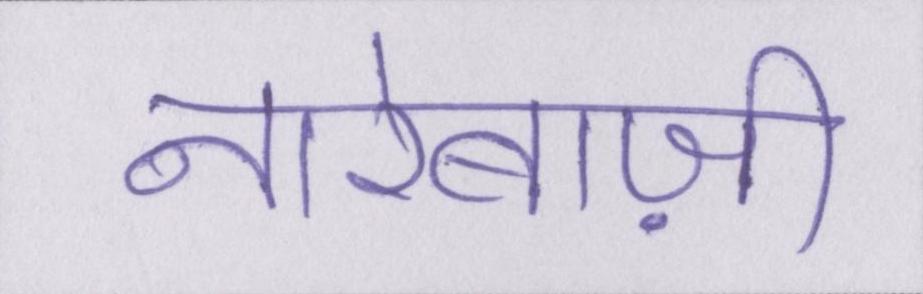 नारेबाज़ी